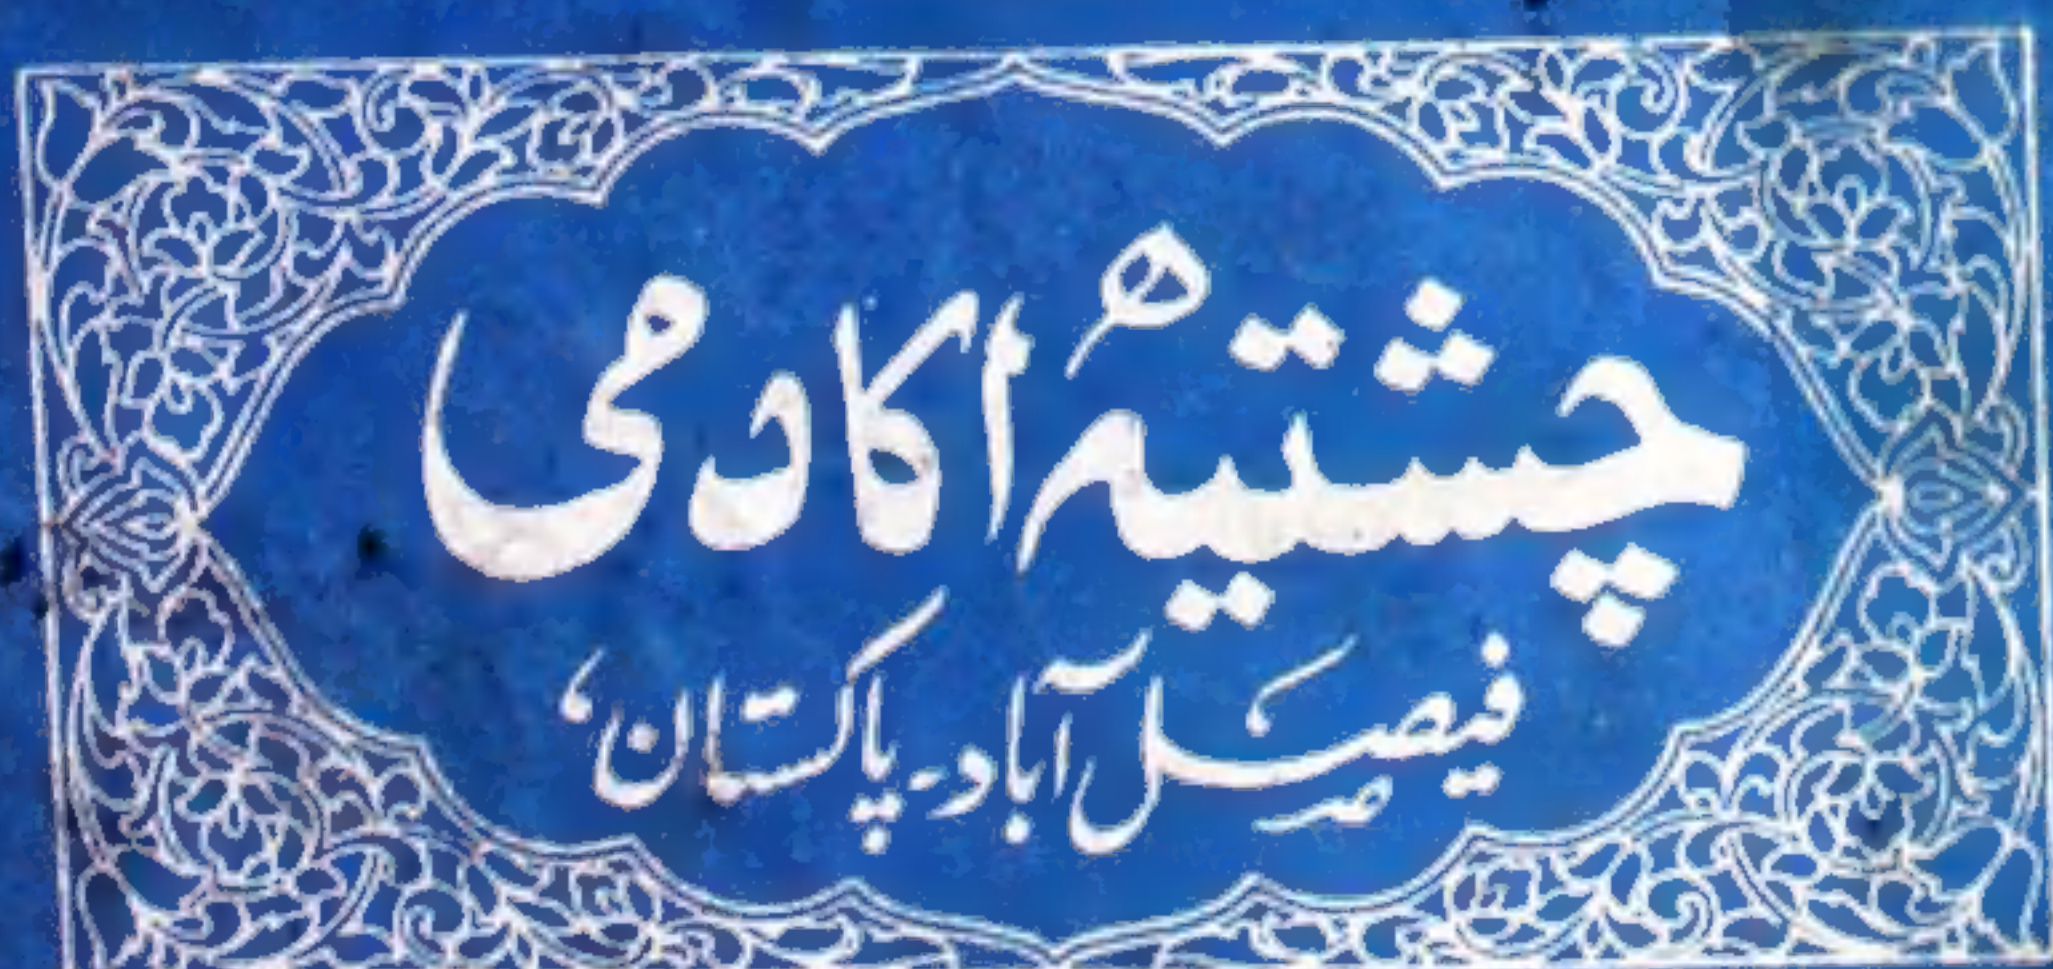 چشتیہ اکادمی
فیصل آباد۔ پاکستان،